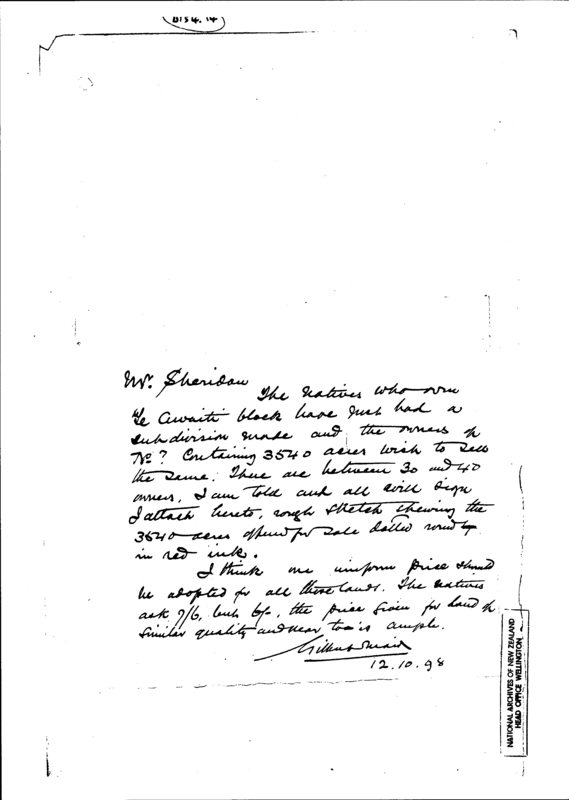 B154.14
Mr. Sheridan
The Natives who own
Te Awaiti block have just had a
subdivision made and the owners of
No ? Containing 3540 acres wish to sell
the same. There are between 30 and 40
owners, I am told and all will sign
I attach hereto, rough sketch shewing the
3540 acres offered for sale dotted round
in red ink.
I think one uniform price should
be adopted for all these lands. The natives
ask 7/6, but 6/-, the price given for land of
similar quality and near to is ample.
12.10.98
NATIONAL ARCHIVES OF NEW ZEALAND
HEAD OFFICE WELLINGTON